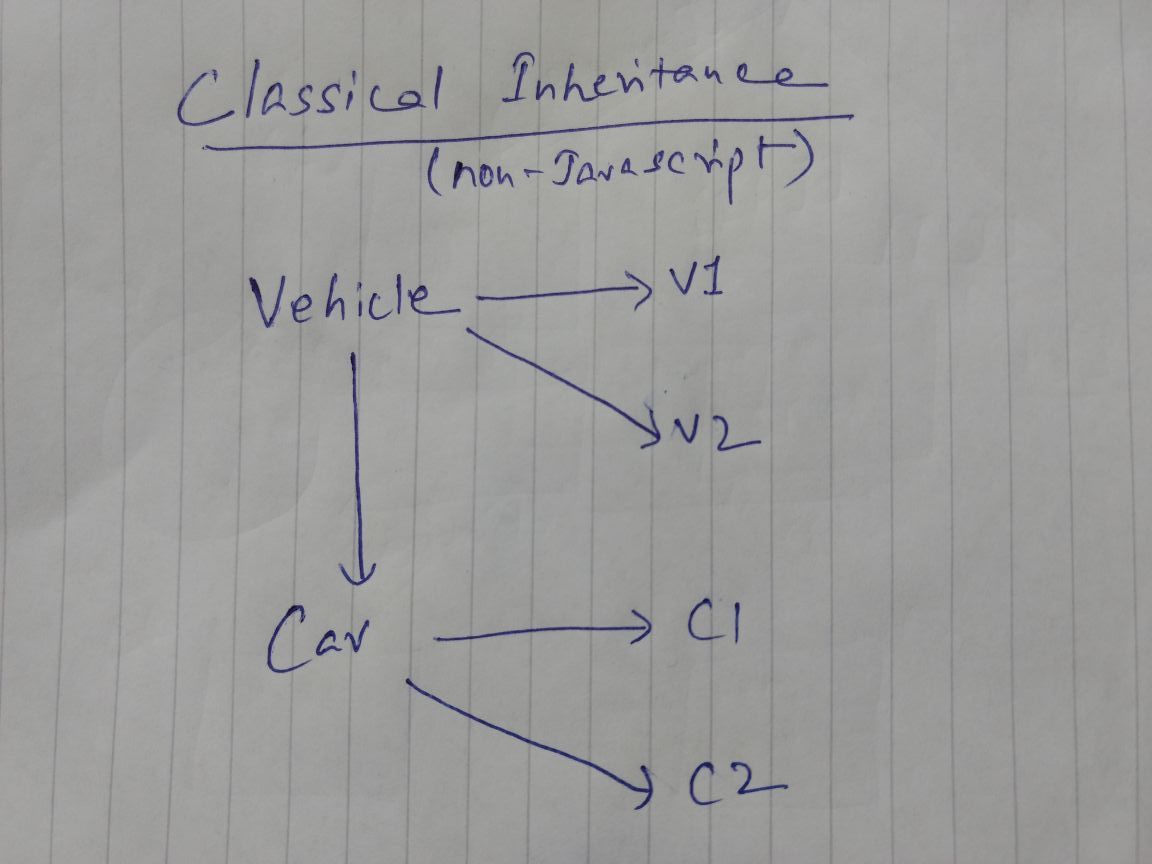 Classical Inheritance
(non-Javascript)
Vehicle V1
V2
Car C1
C2